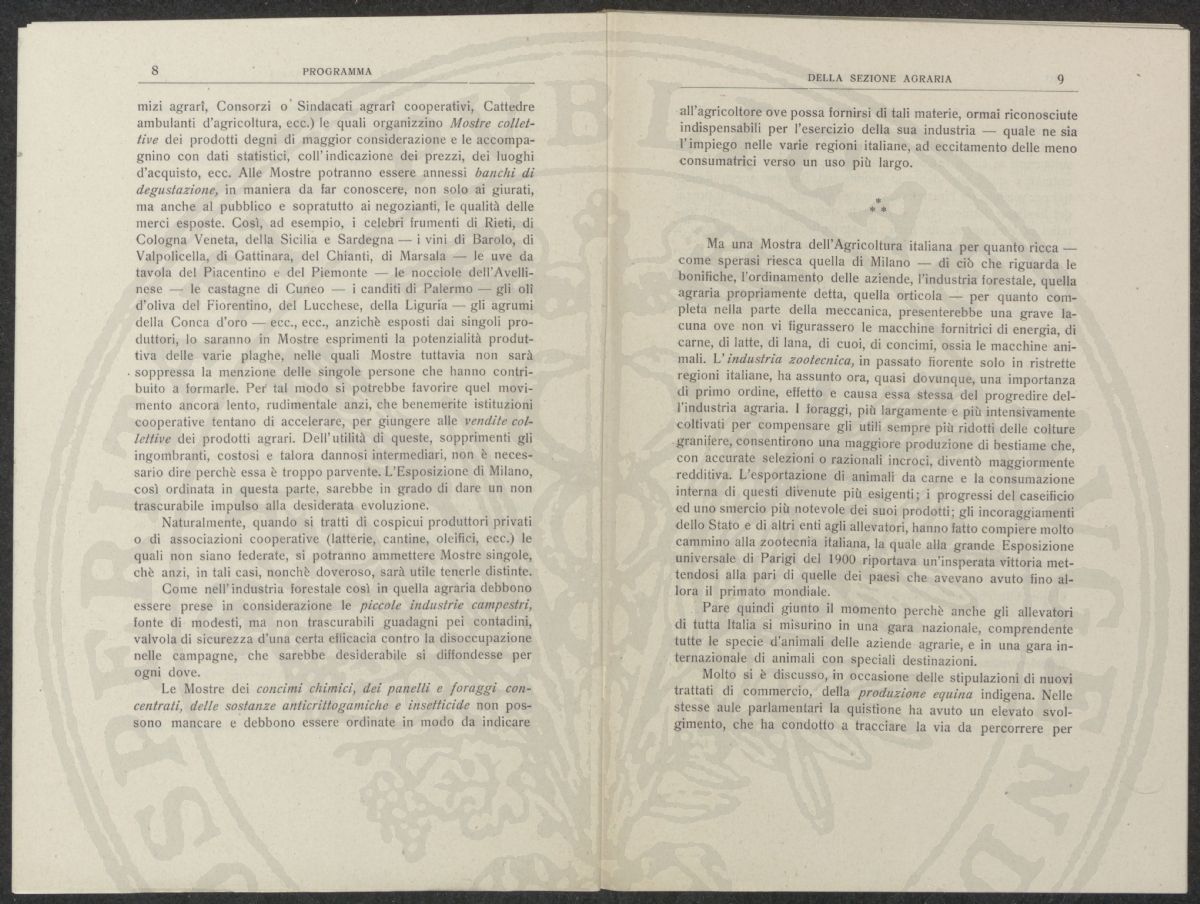 8 PROGRAMMA
mizi agrarî, Consorzi o Sindacati agrarî cooperativi, Cattedre
ambulanti d'agricoltura, ecc.) le quali organizzino Mostre collet-
tive dei prodotti degni di maggior considerazione e le accompa-
gnino con dati statistici, coll'indicazione dei prezzi, dei luoghi
d'acquisto, ecc. Alle Mostre potranno essere annessi banchi di
degustazione, in maniera da far conoscere, non solo ai giurati,
ma anche al pubblico e sopratutto ai negozianti, le qualità delle
merci esposte. Così, ad esempio, i celebri frumenti di Rieti, di
Cologna Veneta, della Sicilia e Sardegna — i vini di Barolo, di
Valpolicella, di Gattinara, del Chianti, di Marsala — le uve da
tavola del Piacentino e del Piemonte — le nocciole dell'Avelli-
nese — le castagne di Cuneo — i canditi di Palermo — gli olî
d'oliva del Fiorentino, del Lucchese, della Liguria — gli agrumi
della Conca d'oro — ecc., ecc., anzichè esposti dai singoli pro-
duttori, lo saranno in Mostre esprimenti la potenzialità produt-
tiva delle varie plaghe, nelle quali Mostre tuttavia non sarà
soppressa la menzione delle singole persone che hanno contri-
buito a formarle. Per tal modo si potrebbe favorire quel movi-
mento ancora lento, rudimentale anzi, che benemerite istituzioni
cooperative tentano di accelerare, per giungere alle vendite col-
lettive dei prodotti agrari. Dell'utilità di queste, sopprimenti gli
ingombranti, costosi e talora dannosi intermediari, non è neces-
sario dire perchè essa è troppo parvente. L'Esposizione di Milano,
così ordinata in questa parte, sarebbe in grado di dare un non
trascurabile impulso alla desiderata evoluzione.
Naturalmente, quando si tratti di cospicui produttori privati
o di associazioni cooperative (latterie, cantine, oleifici, ecc.) le
quali non siano federate, si potranno ammettere Mostre singole,
chè anzi, in tali casi, nonchè doveroso, sarà utile tenerle distinte.
Come nell'industria forestale così in quella agraria debbono
essere prese in considerazione le piccole industrie campestri,
fonte di modesti, ma non trascurabili guadagni pei contadini,
valvola di sicurezza d'una certa efficacia contro la disoccupazione
nelle campagne, che sarebbe desiderabile si diffondesse per
ogni dove.
Le Mostre dei concimi chimici, dei panelli e foraggi con-
centrati, delle sostanze anticrittogamiche e insetticide non pos-
sono mancare e debbono essere ordinate in modo da indicare
DELLA SEZIONE AGRARIA 9
all'agricoltore ove possa fornirsi di tali materie, ormai riconosciute
indispensabili per l'esercizio della sua industria — quale ne sia
l'impiego nelle varie regioni italiane, ad eccitamento delle meno
consumatrici verso un uso più largo.
*
* *
Ma una Mostra dell'Agricoltura italiana per quanto ricca —
come sperasi riesca quella di Milano — di ciò che riguarda le
bonifiche, l'ordinamento delle aziende, l'industria forestale, quella
agraria propriamente detta, quella orticola — per quanto com-
pleta nella parte della meccanica, presenterebbe una grave la-
cuna ove non vi figurassero le macchine fornitrici di energia, di
carne, di latte, di lana, di cuoi, di concimi, ossia le macchine ani-
mali. L'industria zootecnica, in passato fiorente solo in ristrette
regioni italiane, ha assunto ora, quasi dovunque, una importanza
di primo ordine, effetto e causa essa stessa del progredire del-
l'industria agraria. I foraggi, più largamente e più intensivamente
coltivati per compensare gli utili sempre più ridotti delle colture
granifere, consentirono una maggiore produzione di bestiame che,
con accurate selezioni o razionali incroci, diventò maggiormente
redditiva. L'esportazione di animali da carne e la consumazione
interna di questi divenute più esigenti; i progressi del caseificio
ed uno smercio più notevole dei suoi prodotti; gli incoraggiamenti
dello Stato e di altri enti agli allevatori, hanno fatto compiere molto
cammino alla zootecnia italiana, la quale alla grande Esposizione
universale di Parigi del 1900 riportava un'insperata vittoria met-
tendosi alla pari di quelle dei paesi che avevano avuto fino al-
lora il primato mondiale.
Pare quindi giunto il momento perchè anche gli allevatori
di tutta Italia si misurino in una gara nazionale, comprendente
tutte le specie d'animali delle aziende agrarie, e in una gara in-
ternazionale di animali con speciali destinazioni.
Molto si è discusso, in occasione delle stipulazioni di nuovi
trattati di commercio, della produzione equina indigena. Nelle
stesse aule parlamentari la quistione ha avuto un elevato svol-
gimento, che ha condotto a tracciare la via da percorrere per